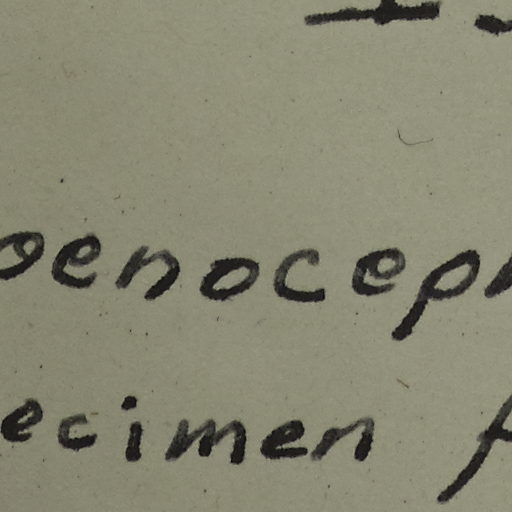 oenocep
ecimen f